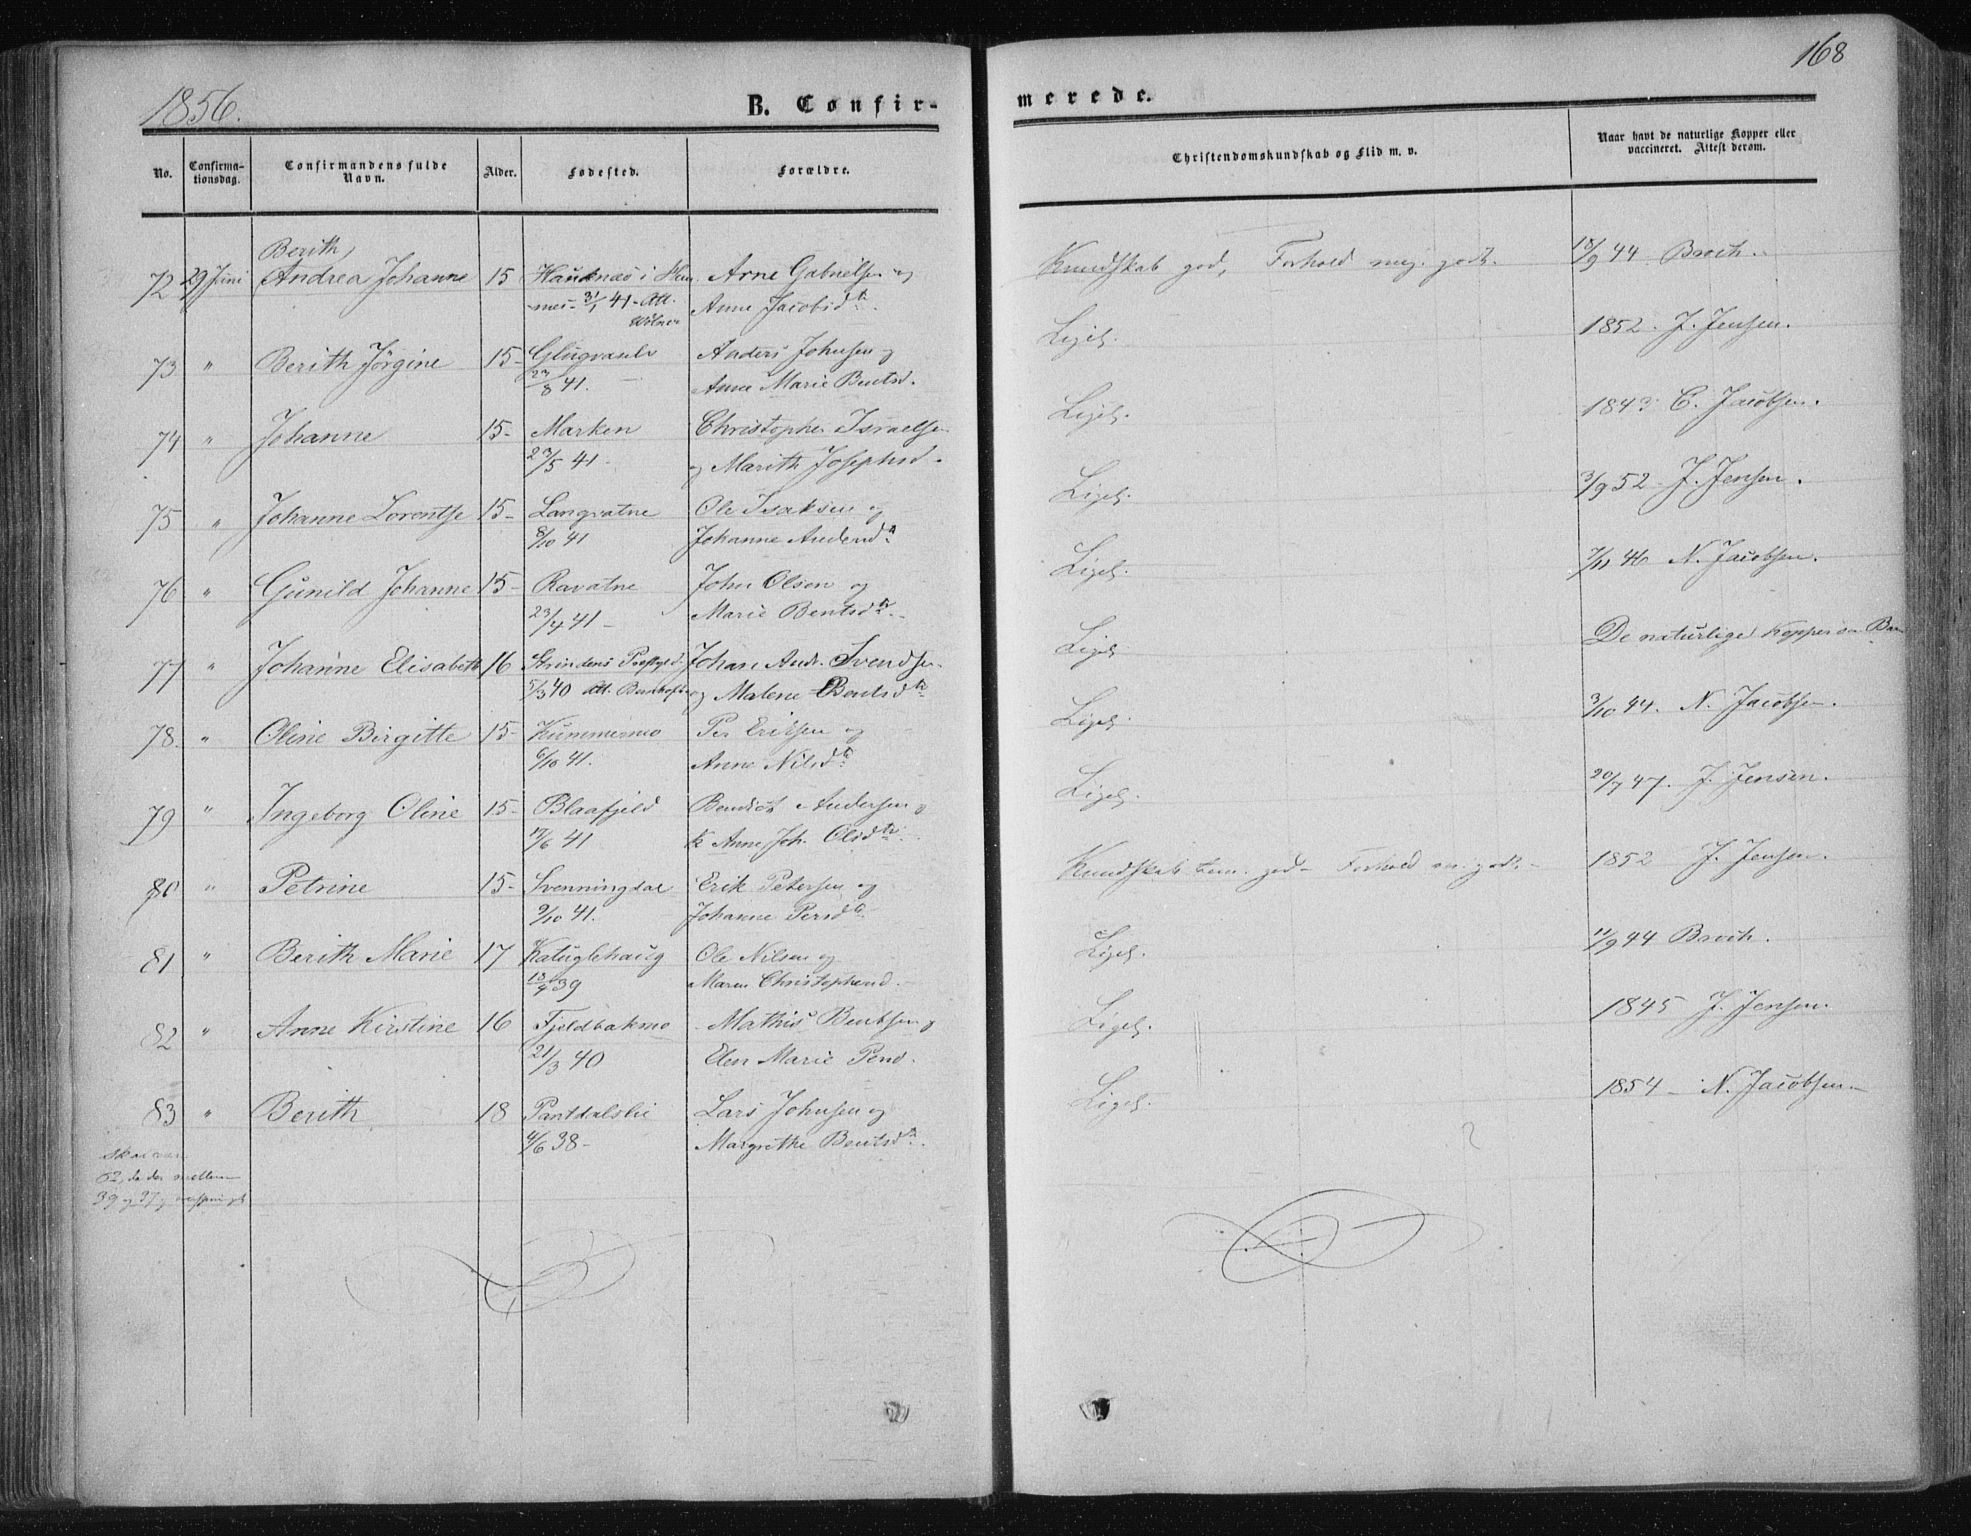 168
1856.
B. Confir-
merede.
No.
Confirma-
tionsdag.
Confirmandens fulde
Navn.
Alder.
Fødested.
Forældre.
Christendomskundskab og Flid m. v.
Naar havt de naturlige Kopper eller
vaccineret. Attest derom.
Berith
72 29 Juni Andrea Johanne 15 i Arne Gabrielsen og Kundskab god, Forhold meg. godt. 18/9 44 Broch.
31/1 41 - Att. Anne Jacobsdtr.
73 " Berith Jörgine 15- Anders Johnsen og Ligel. 1852. J. Jensen.
23/8 41. Anne Marie Bentsd.
74 " Johanne 15- Marken Christopher Israelsen Ligel. 1843 C. Jacobsen.
23/5 41- og Marith Josephsd.
75 " Johanne Lorentse 15- Langvatne Ole Isaksen og Ligel. 3/9 52 J. Jensen.
8/10 41 Johanne Andersdtr
76 " Gunild Johanne 15- Ravatne John Olsen og Ligel. 7/11 46 N. Jacobsen.
23/4 41- Marie Bentsdtr.
77 " Johanne Elisabeth 16 Strindens Johan Andr. Svendsen Ligel. De naturlige Kopper
5/3 40 Att. og Malene Bentsdtr
78. " Oline Birgitte 15- Per Eritsen og Ligel. 3/10 44. N. Jacobsen.
6/10 41. Anne Nilsdtr.
79 " Ingeborg Oline 15- Blaafjeld Bendict Andersen og Ligel. 20/7 47. J. Jensen.
17/6 41 K Anne Joh. Olsdtr.
80 " Petrine 15- Svenningdal Erik Petersen og Kundskab tem. god - Forhold m. godt. 1852 J. Jensen.
9/10 41. Johanne Persdtr
81 " Berith Marie 17 Katuglehaug Ole Nilsen og Ligel. 11/9 44 Broch.
13/4 39 Maren Christophersd.
82 " Anne Kirstine 16 Fjeldbakmo Mathis Bentsen og Ligel. 1845 J. Jensen.
21/3 40 Elen Marie Persd.
83 " Berith 18 Pantdalslie Lars Johnsen og Ligel. 1854 - N. Jacobsen
4/6 38- Margrethe Bentsdtr.
skal være
82, da der mellem
39 og 37